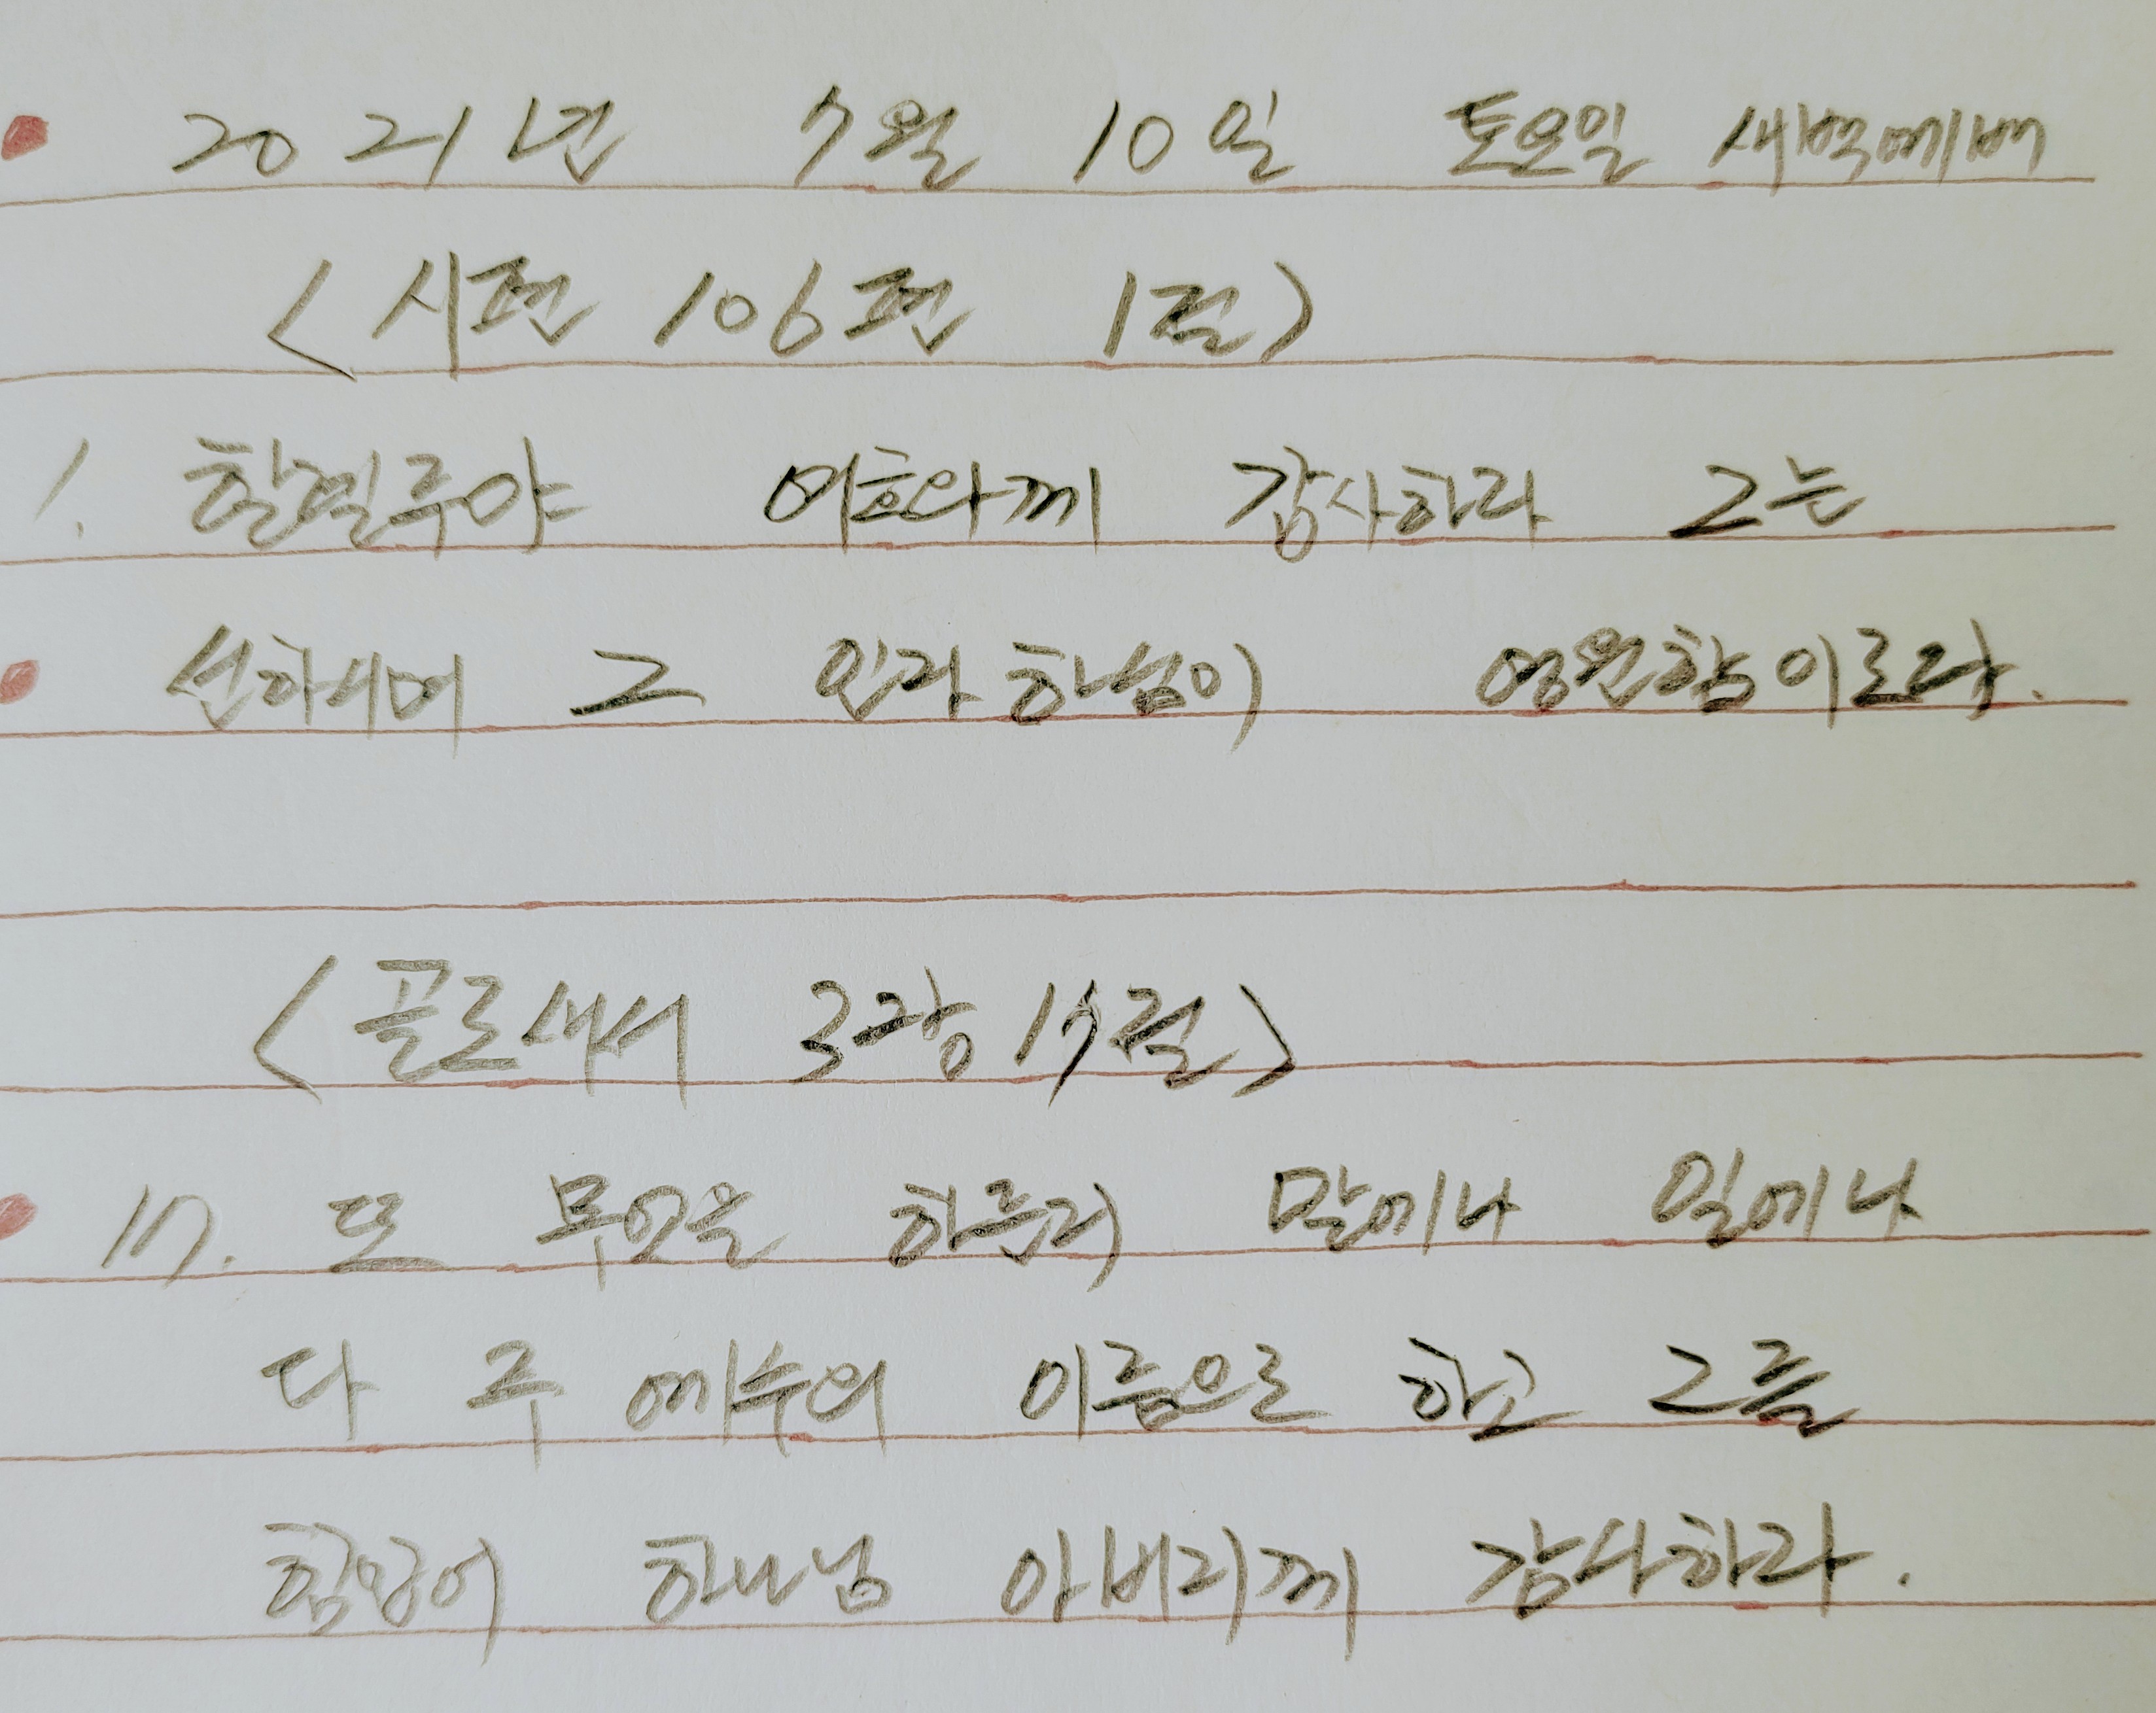 2021년 7월 10일 토요일 새벽예배
<시편 106편 1절>
1. 할렐루야 여호와께 감사하라 그는
선하시며 그 인자하심이 영원함이로다.
<골로새서 3장 17절>
17. 또 무엇을 하든지 말에나 일에나
다 주 예수의 이름으로 하고 그를
힘입어 하나님 아버지께 감사하라.